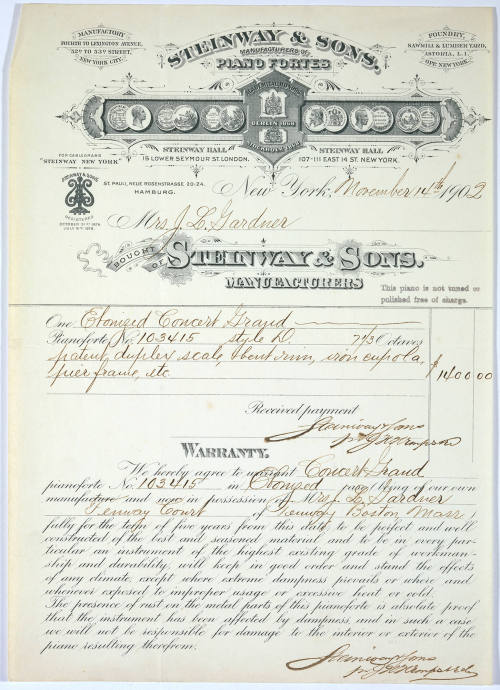 MANUFACTORY
FOURTH TO LEXINGTON AVENUE,
52D TO 53D STREET,
NEW YORK CITY.
STEINWAY & SONS.
MANUFACTURERS OF
PIANO FORTES
FOUNDRY,
SAWMILL & LUMBER YARD,
ASTORIA, L. I.
OPP. NEW YORK.
BERLIN 1868
STOCKHOLM
STEINWAY HALL
15 LOWER SEYMOUR ST. LONDON.
STEINWAY HALL
107-111 EAST 14 ST. NEW YORK.
FOR CABLEGRAMS
"STEINWAY NEW YORK"
STEINWAY & SONS
REGISTERED
ST. PAULI, NEUE ROSENSTRASSE 20-24.
HAMBURG.
New York, November 14th 1902
Mrs J. L. Gardner
BOUGHT OF STEINWAY & SONS.
MANUFACTURERS
This piano is not tuned or
polished free of charge.
One Ebonized Concert Grand
Pianoforte No 103415 style D. 7 1/3 Octaves
patent, duplex scale, bent rim, iron cupola,
pier frame, etc. $ 1400 00
Received payment
Steinway & Sons
WARRANTY.
We hereby agree to warrant Concert Grand
pianoforte No. 103415 in Ebonized case, being of our own
manufacture and now in possession of Mrs J. L. Gardner
Fenway Court of Fenway Boston Mass,
fully for the term of five years from this date to be perfect and well
constructed of the best and seasoned material and to be in every par-
ticular an instrument of the highest existing grade of workman-
ship and durability, will keep in good order and stand the effects
of any climate, except where extreme dampness prevails or where and
whenever exposed to improper usage or excessive heat or cold.
The presence of rust on the metal parts of this pianoforte is absolute proof
that the instrument has been affected by dampness, and in such a case
we will not be responsible for damage to the interior or exterior of the
piano resulting therefrom.
Steinway & Sons